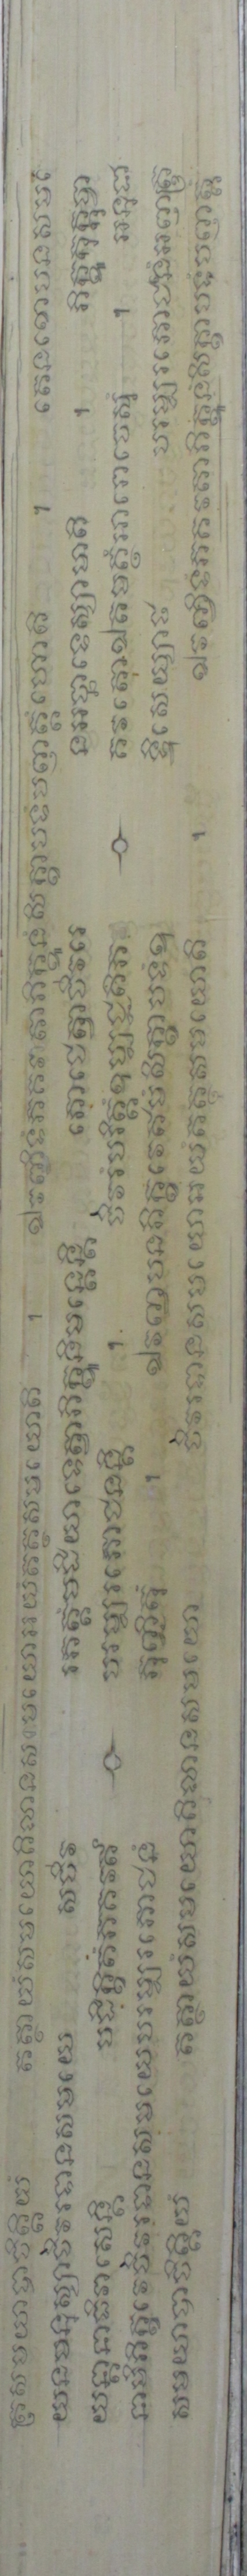 ត្រសមយាបាចិត្តិយំ តត្ថាយំសមយោគិលានសមយោអយំតត្ថសមយោតិ ។ ឯវញ្ចិទំភគវតាភិក្ខូនំសិក្ខាបទំបញ្ញត្តំហោតិ ។ តេនខោបនសមយេ
យនមនុស្សាចីវរទានសមយេ សចីវ រភត្តំបដិយាទេត្វាភិក្ខូនិមន្តេន្តិ ភោជេត្វាចីវរេ នអច្ឆាទេស្សាមាតិ ។ ភិក្ខូកុក្កុច្ចា
យន្តានាធិវាសេន្តិ បដិក្ខិត្តំភគវតា បរម្បរភោជនន្តិ ។ ចីវរំបរិត្តំឧប្បជ្ជតិភ គវតោឯតមត្ថំអារោចេសុំ ។ អនុជា
នាមិភិក្ខវេចីវរទានសមយេបរម្បរភោជនំ ភុញ្ជិតុំ ។ ឯវញ្ចបនភិក្ខវេឥមំសិក្ខាបទំឧ ទ្ទិសេយ្យាថ បរម្បរភោជនេអញ្ញត្រ
សមយាបាចិត្តិយំ តត្ថាយំសមយោគិលានសមយោ ចីវរទានសមយោអយំតត្ថសមយោតិ ។ ឯវញ្ចិទំភគវតាភិក្ខូនំសិក្ខាបទំបញ្ញត្តំ